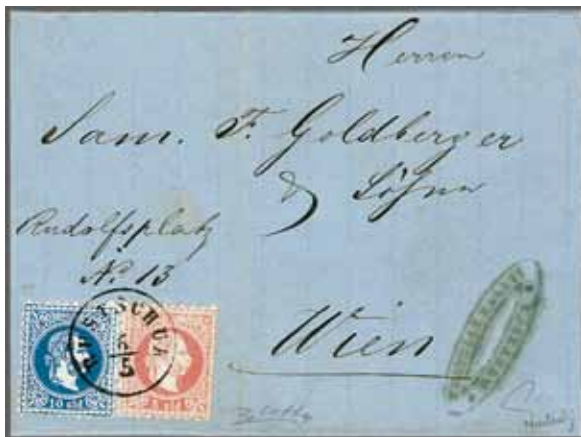 Herren
Sam. F. Goldberger
& Söhne
Rudolfsplatz
No 13
Wien
RUSTSCHUK
5
10 sld
5 sld